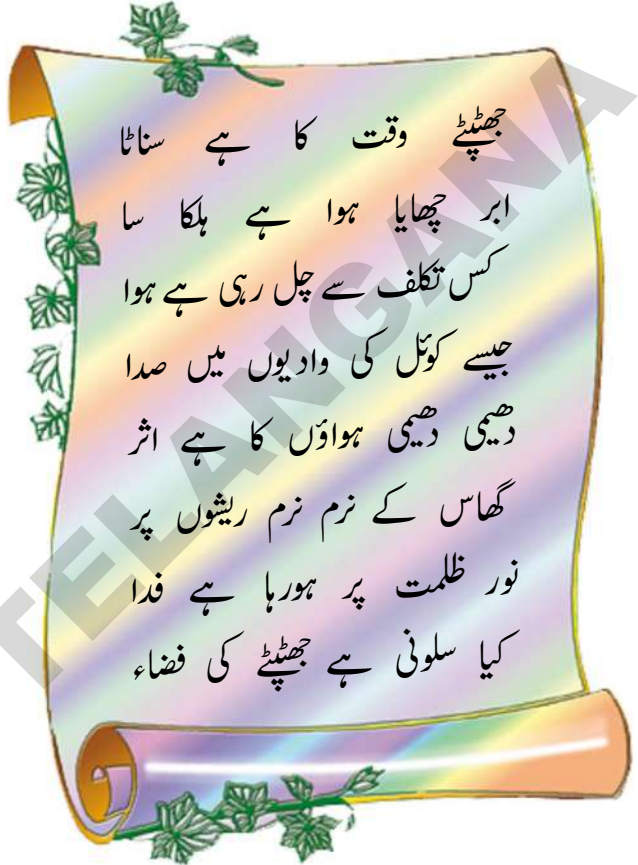 جھٹپٹے وقت کا ہے سناٹا
ابر چھایا ہوا ہے ہلکا سا
کس تکلف سے چل رہی ہے ہوا
جیسے کوئل کی وادیوں میں صدا
دھیمی دھیمی ہواؤں کا ہے اثر
گھاس کے نرم نرم ریشوں پر
نور ظلمت پر ہورہا ہے فدا
کیا سلونی ہے جھٹپٹے کی فضاء
TELANGANA